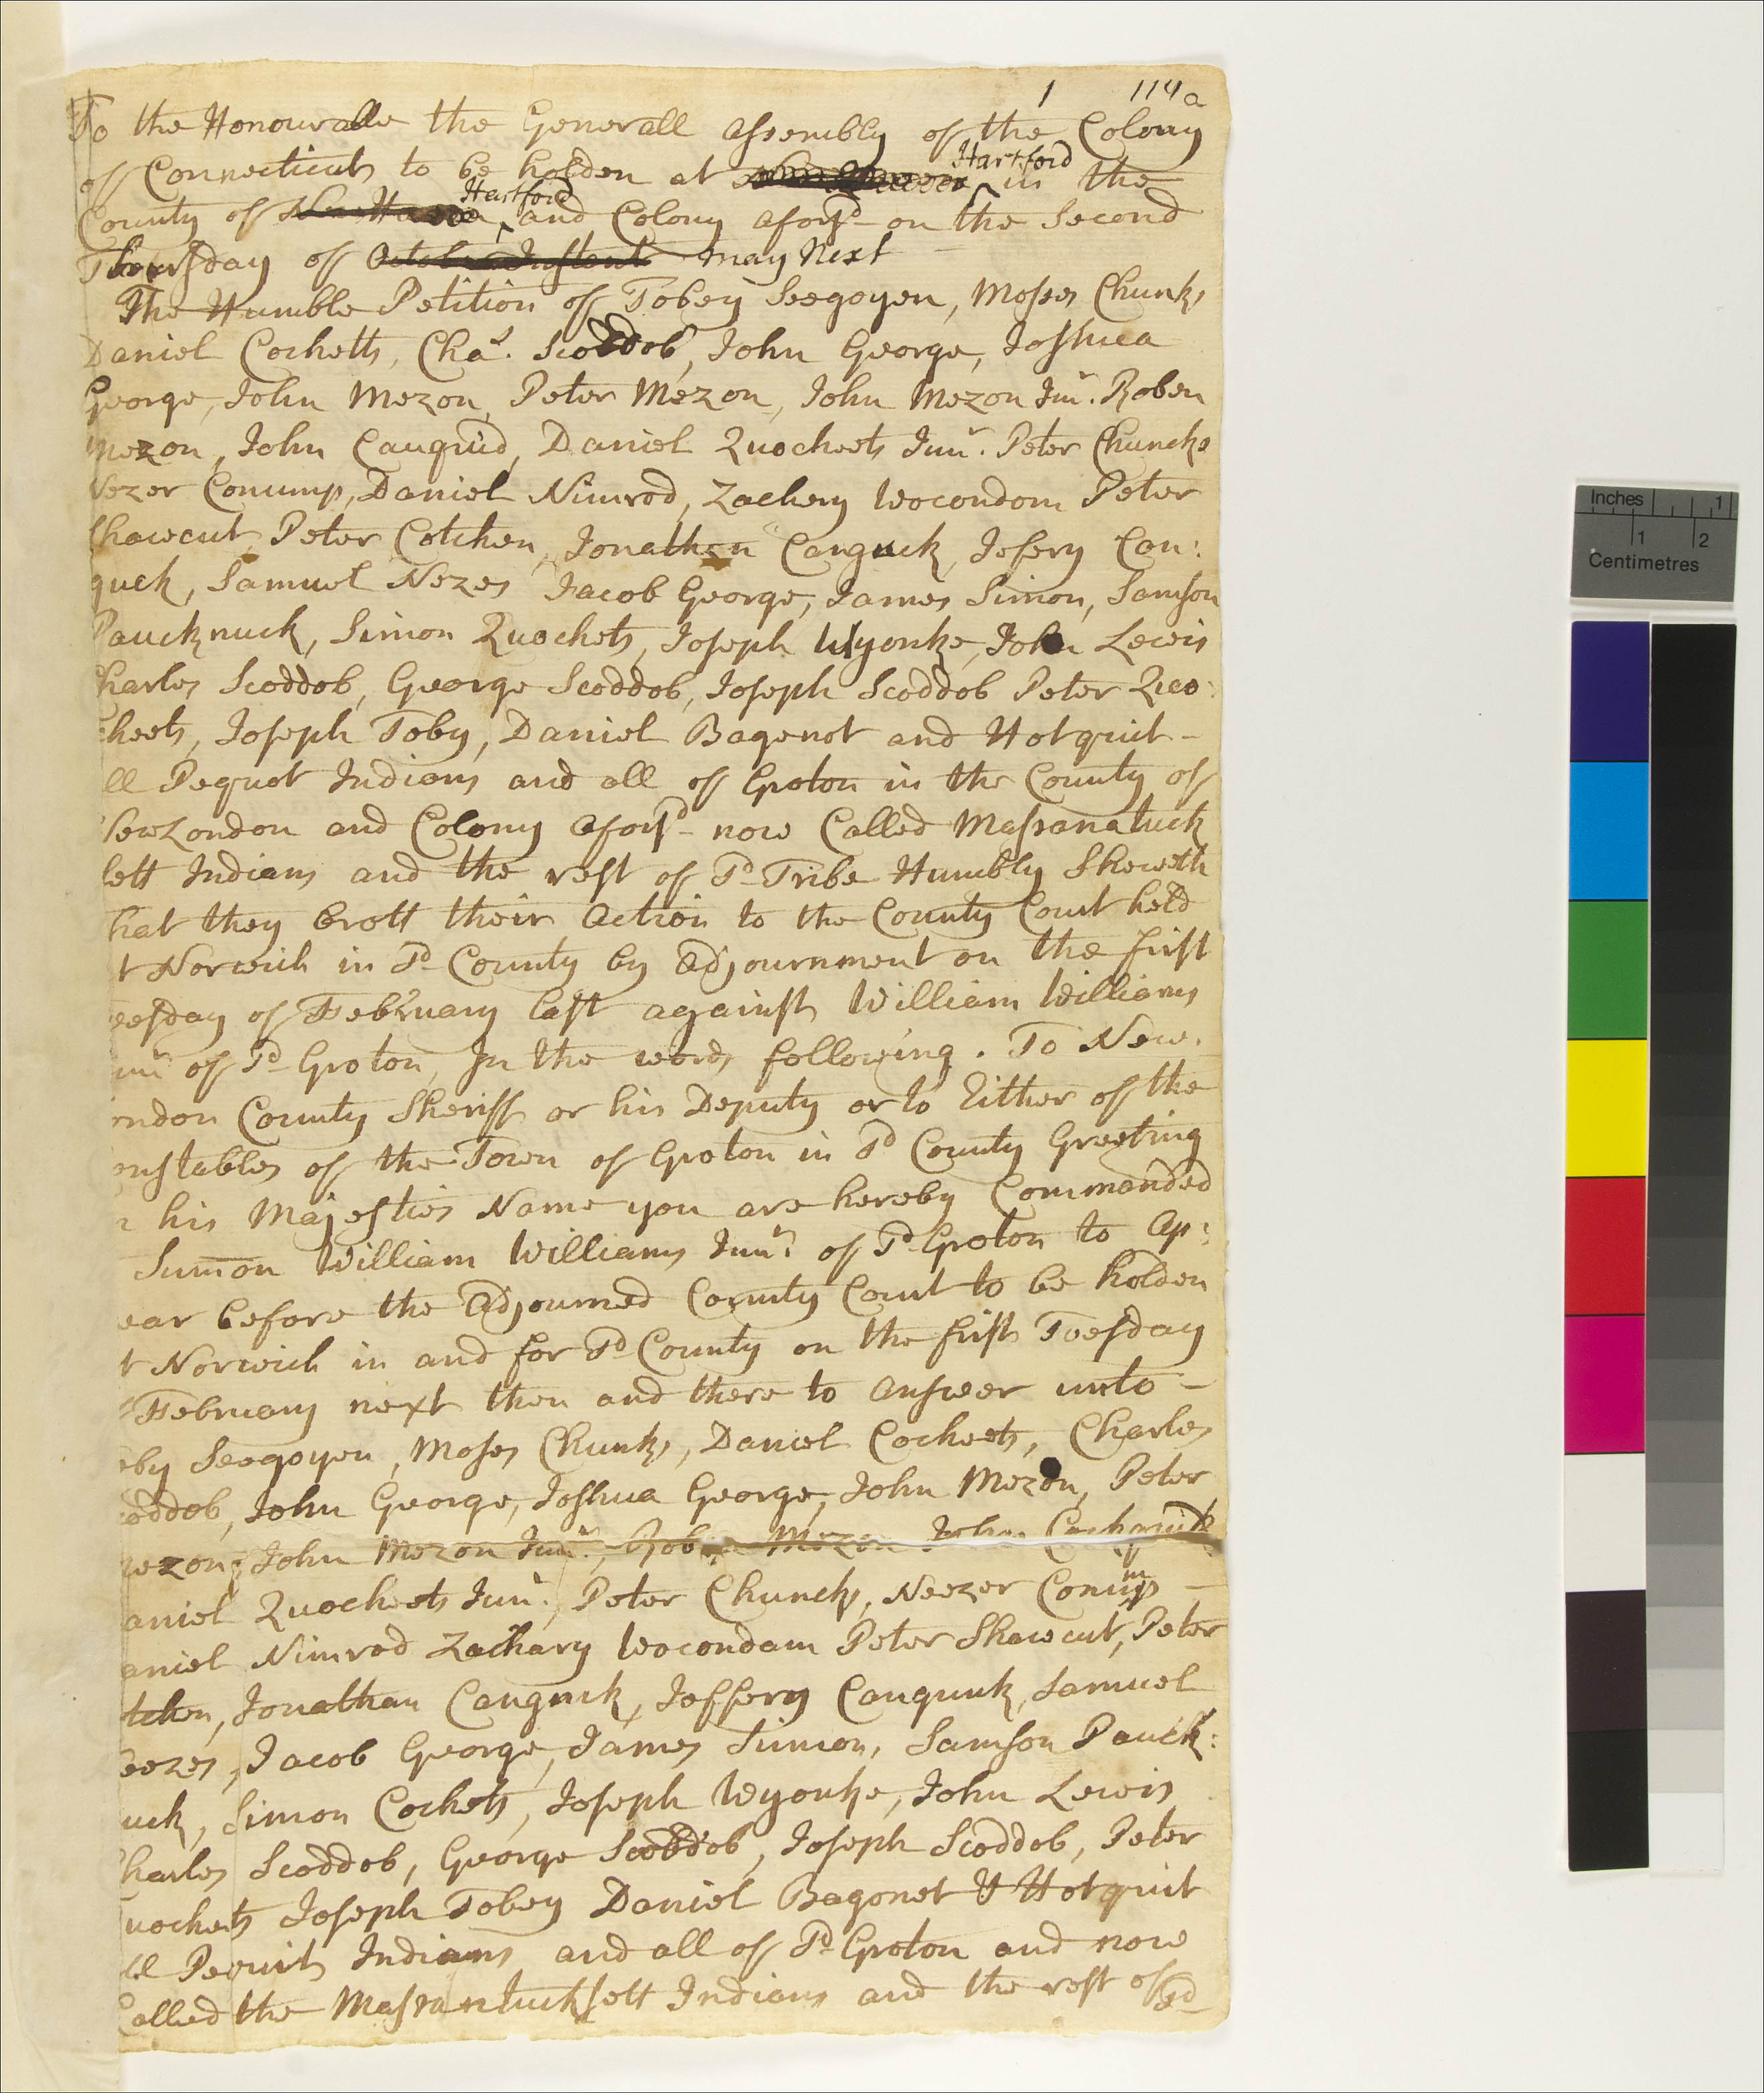 1 114a
To the Honourable the Generall assembly of the Colony
of Connecticut to be holden at Hartford in the
County of New Haven Hartford and Colony afors.d on the Second
Thursday of October Instent may Next
The Humble Petition of Tobey Seegoyen, Moses Chunks
Daniel Cochetts, Cha.s Scoddob, John George, Joshua
George, John Mezon, Peter Mezon, John Mezon Jun.r Roben
Mezon, John Cauquid, Daniel Quocheets Jun.r Peter Chuncks
Nezer Conump, Daniel Nimrod, Zachery Wocondom Peter
Shawcut Peter Cotchen, Jonathan Cauguck, Jefery Cau:
guck, Samuel Nezes Jacob George, James Simon, Samson
Paucknuck, Simon Quochets, Joseph Wyonke, John Lewis
Charles Scoddob, George Scoddob, Joseph Scoddob Peter Quo:
cheets, Joseph Toby, Daniel Bagenot and Hotquit -
ll Pequot Indians and all of Groton in the County of
New London and Colony afors.d now Called Massanatuck
sett Indians and the rest of s.d Tribe Humbly Sheweth
hat they brott their action to the County Court held
t Norwich in s.d County by adjournment on the first
uesday of February last against William Williams
un.r of s.d Groton, In the words following. To New.
ondon County Sheriff or his Deputy or to Either of the
onstables of the Town of Groton in s.d County Greeting
n his Majesties Name you are hereby Commanded
Sumon William Williams Jun.r of s.d Groton to ap:
ear before the adjourned County Court to be holden
t Norwich in and for s.d County on the first Tuesday
February next then and there to answer unto -
oby Seegoyen, Moses Chunks, Daniel Cocheets, Charles
oddob, John George, Joshua George, John Mezon, Peter
ezon, John Mezon Jun.r, Roben Mezon John
aniel Quocheets Jun.r, Peter Chuncks, Neezer Conump -
aniel Nimrod Zachary Wocondam Peter Shawcut, Peter
tchen, Jonathan Cauguck, Joffery Cauquuk, Samuel
eezes, Jacob George, James Simon, Samson Pauck:
uck, Simon Cochets, Joseph Wyonke, John Lewis
Charles Scoddob, George Scoddob, Joseph Scoddob, Peter
uochets Joseph Tobey Daniel Bagonet & Hotquit
ll Pequit Indians and all of s.d Groton and now
Called the Massantucksett Indians and the rest of s.d
Inches 1
1 2
Centimetres